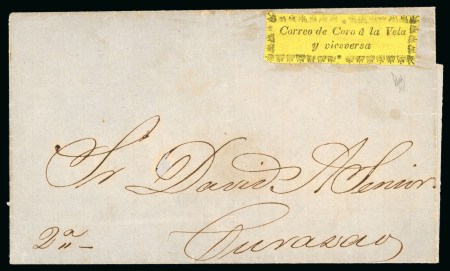 Correo de Coro á la Vela
y viceversa
Sr David A Senior
Curazao